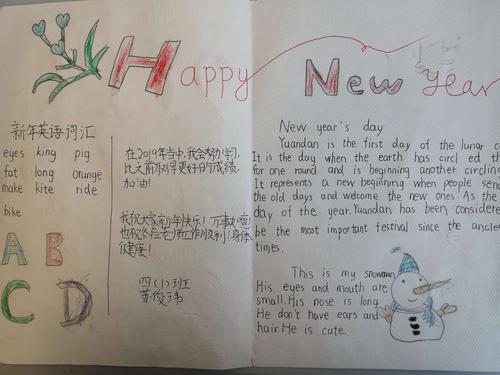 Happy New Year
新年英语词汇
eyes king pig
fat long orange
make kite ride
bike
A B
C D
在2019年当中,我会努力学习,
比之前取得更好的成绩,
加油!
我祝大家新年快乐!万事如意!
也祝各位老师工作顺利!身体
健康!
四(1)班
苏俊玮
New year's day
Yuandan is the first day of the lunar c
It is the day when the earth has circl ed th
for one round and is beginning another circling
It represents a new beginning when people sen
the old days and welcome the new ones. As the
day of the year. Yuandan has been considere
be the most important festival since the ancie
times.
This is my snowman
His eyes and mouth are
small. His nose is long.
He don't have ears and
hair. He is cute.